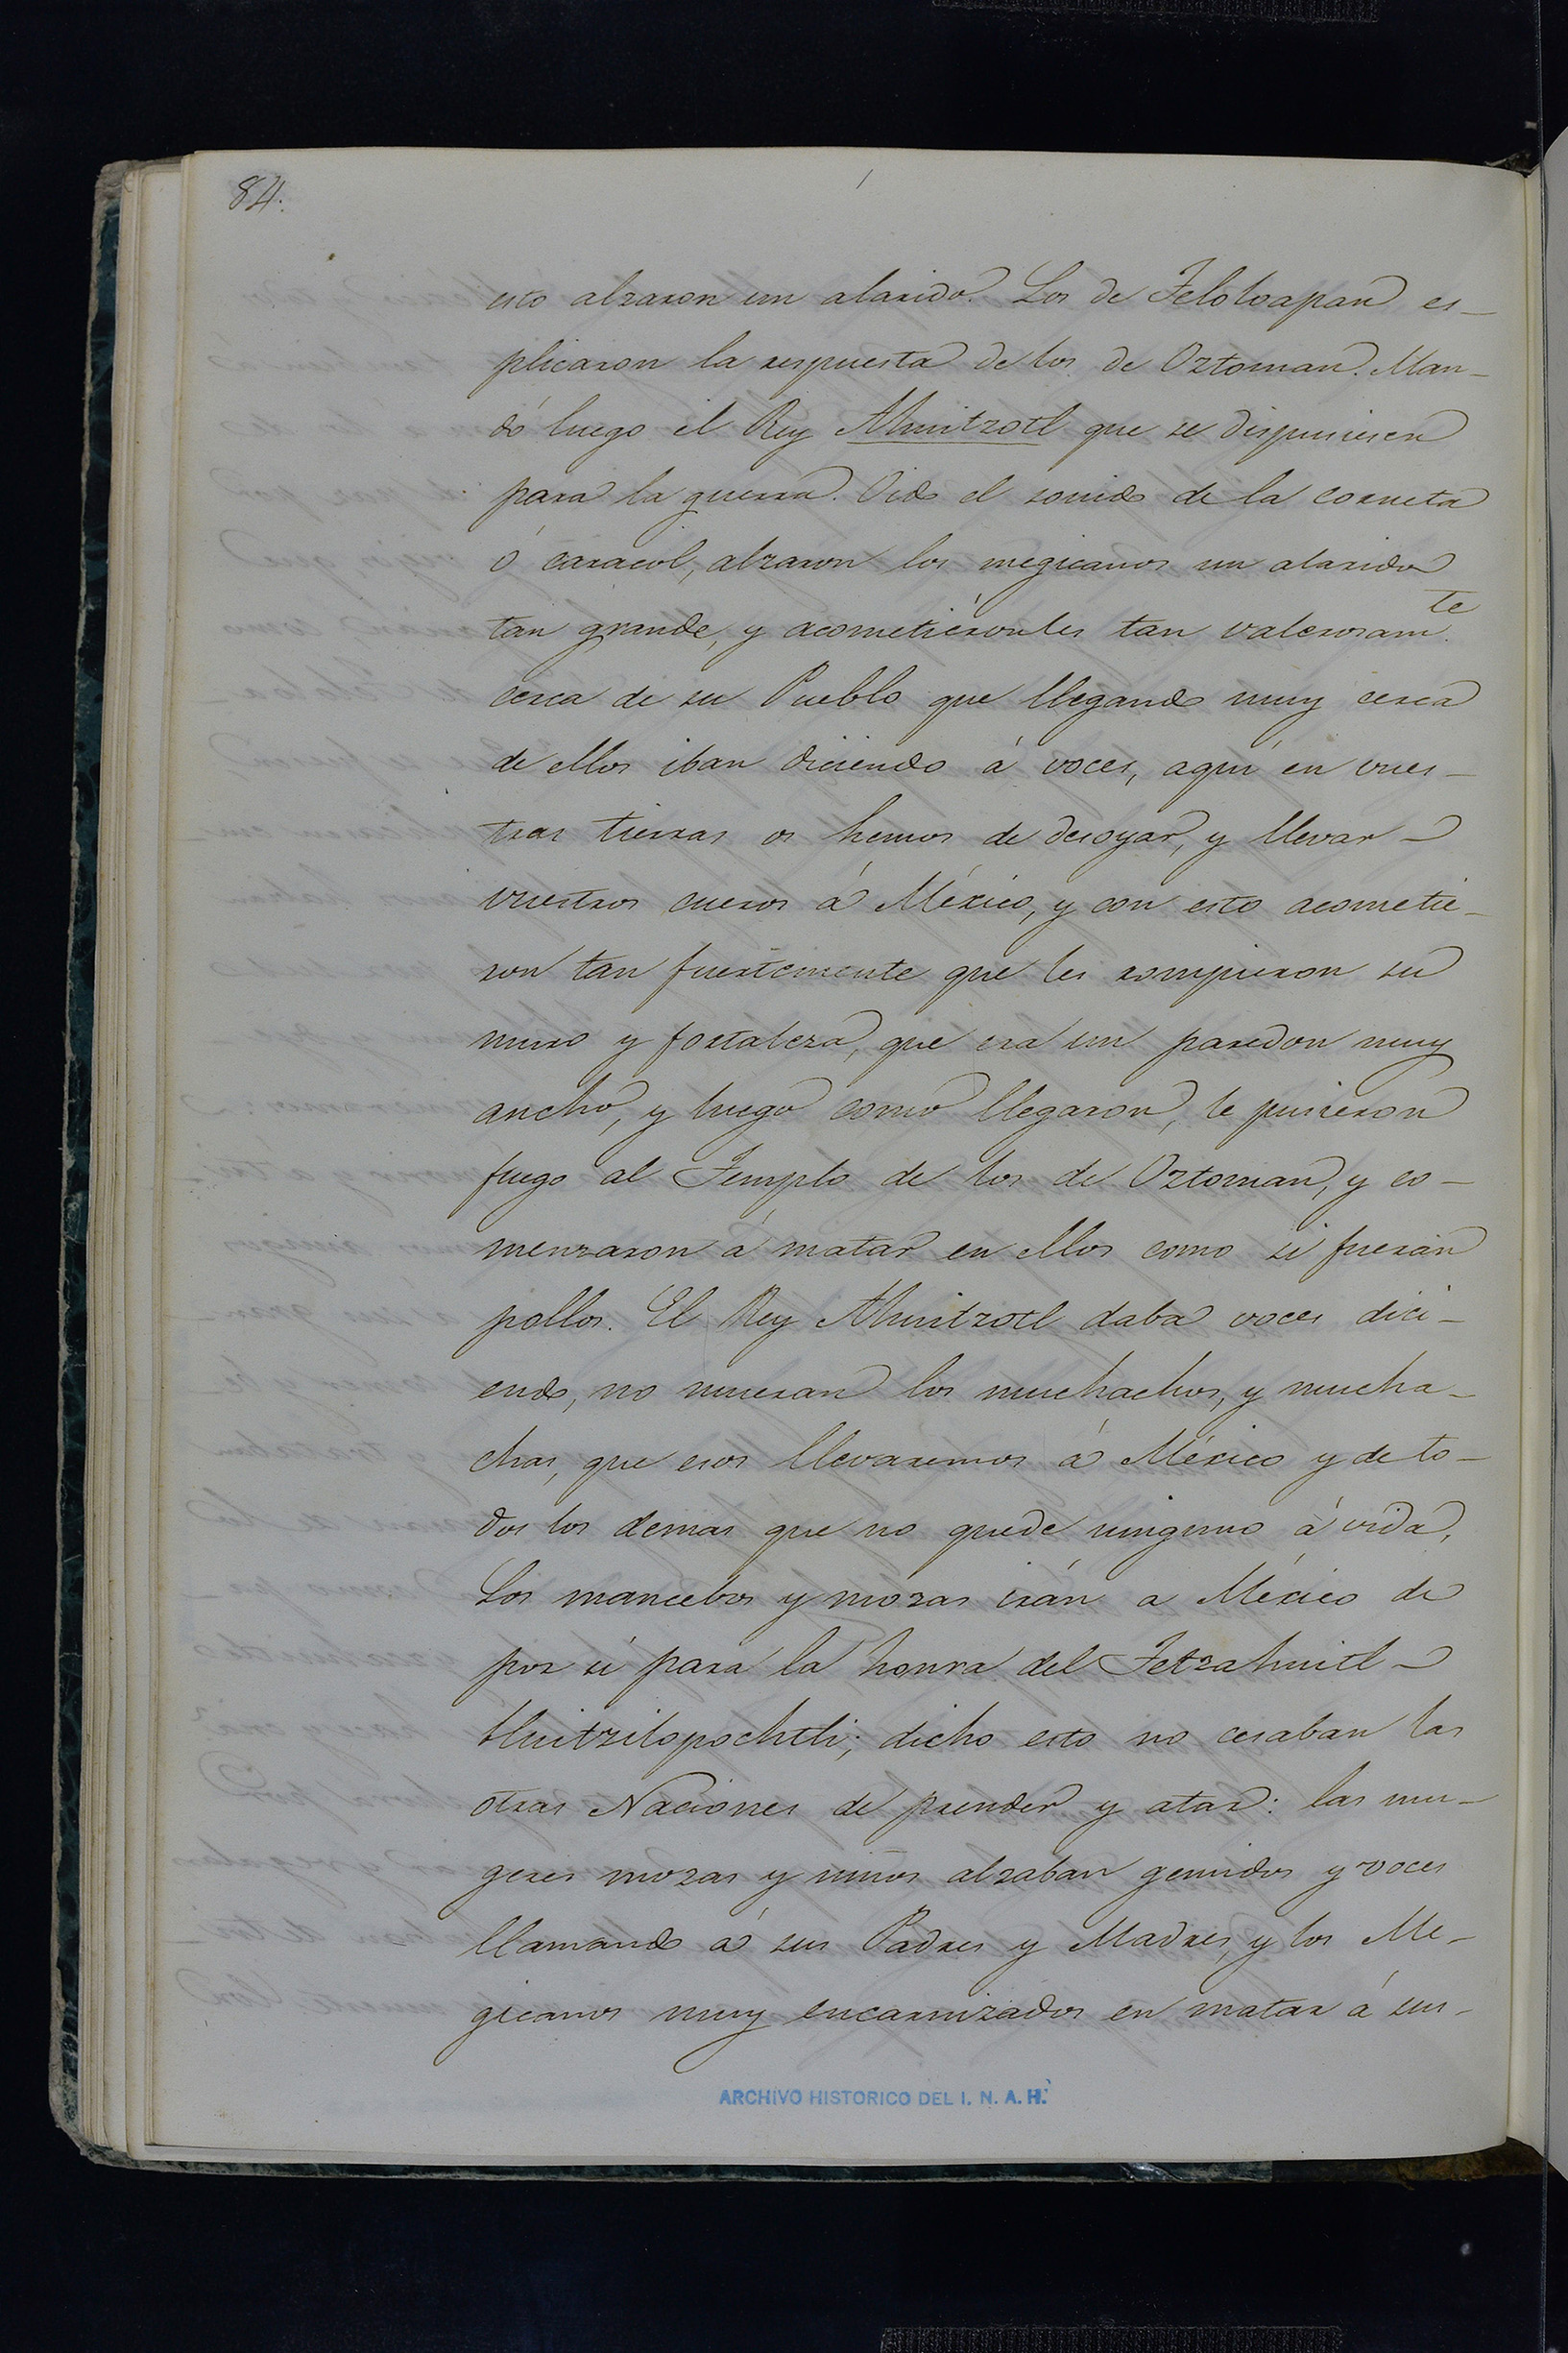 84.
esto alzaron un alarido. Los de Teloloapan es-
plicaron la respuesta de los de Oztoman. Man-
dó luego el Rey Ahuitzotl que se dispusiesen
para la guerra. Oido el sonido de la corneta
ó caracol, alzaron los megicanos un alarido
tan grande, y acometiéronles tan valerosam.te
cerca de su Pueblo que llegando muy cerca
de ellos iban diciendo á voces, aquí en vues-
tras tierras os hemos de desoyar, y llevar
vuestros cueros á México, y con esto acometie-
ron tan fuertemente que les rompieron su
muro y fortaleza, que era un paredon muy
ancho, y luego como llegaron, le pusieron
fuego al Templo de los de Oztoman, y co-
menzaron á matar en ellos como si fueran
pollos. El Rey Ahuitzotl daba voces dici-
endo, no mueran los muchachos, y mucha-
chas, que esos llevaremos á México y de to-
dos los demas que no quede ninguno á vida,
Los mancebos y mozas irán a México de
por sí para la honra del Tetzahuitl
Huitzilopochtli; dicho esto no cesaban las
otras Naciones de prender y atar: las mu-
geres mozas y niños alzaban gemidos y voces
llamando á sus Padres y Madres, y los Me-
gicanos muy encarnizados en matar á sus-
ARCHIVO HISTORICO DEL I. N. A. H.